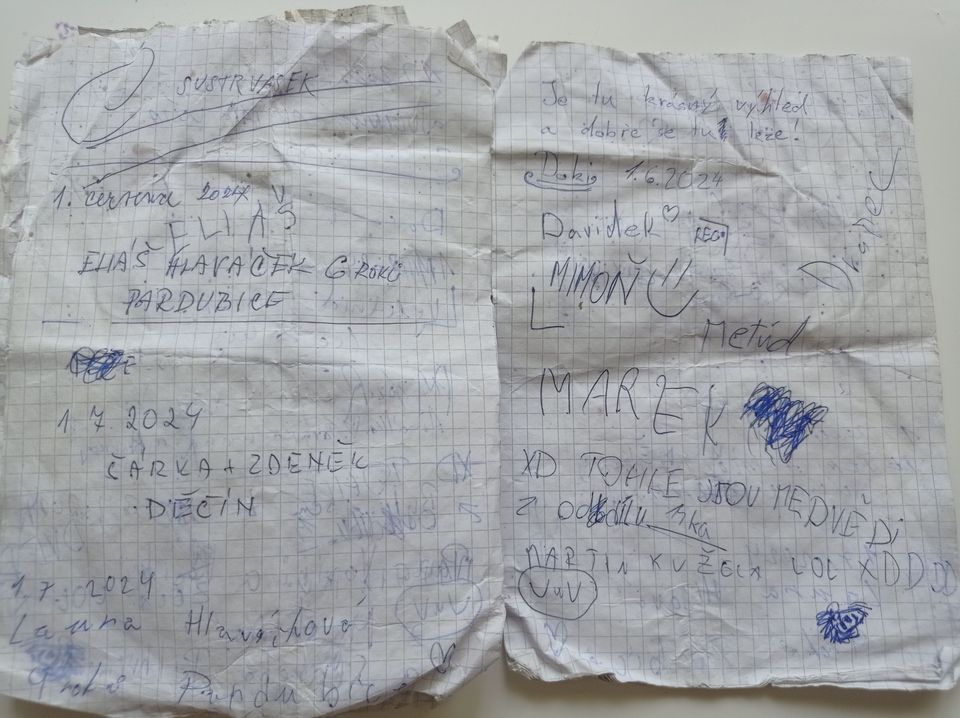 SUSTRVAŠEK
1. června 2024
ELIÁŠ
ELIÁŠ HLAVÁČEK 6 ROKŮ
PARDUBICE
1.7.2024
ČÁRKA + ZDENĚK
DĚČÍN
1.7.2024
Laura Hlaváčková
9 roků Pardubice
Je tu krásný výhled
a dobře se tu leze!
1.6.2024
Davidek
MIMOŇ
Metúd
MAREK
XD TOHLE JSOU MEDVĚDi
z oddílu
MARTIN KUŽELA LOL XDDD
UwU